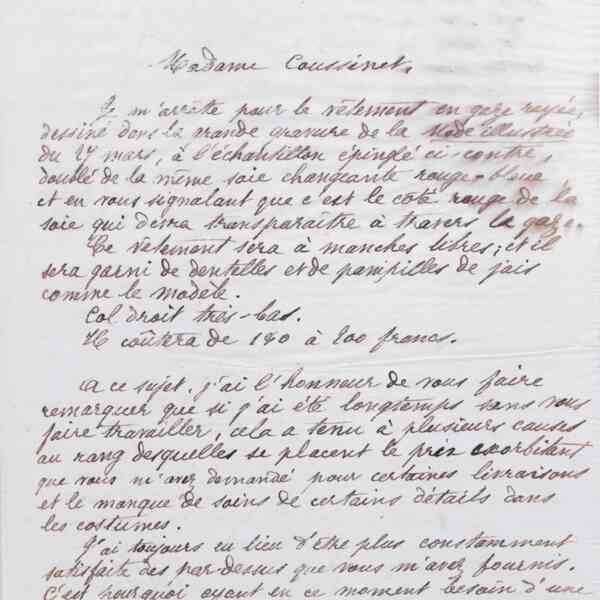 Madame Coussinet,
Je m'arrête pour le vêtement en gaze rayée,
dessiné dans la grande gravure de la Mode illustrée
du 27 mars, à l'échantillon épinglé ci-contre,
doublé de la même soie changeante rouge-bleue
et en vous signalant que c'est le côté rouge de la
soie qui devra transparaître à travers la gaze.
Ce vêtement sera à manches libres; et il
sera garni de dentelles et de pampilles de jais
comme le modèle.
Col droit très-bas.
Il coûtera de 180 à 200 francs.
A ce sujet, j'ai l'honneur de vous faire
remarquer que si j'ai été longtemps sans vous
faire travailler, cela a tenu à plusieurs causes
au rang desquelles se placent le prix exorbitant
que vous m'avez demandé pour certaines livraisons
et le manque de soins de certains détails dans
les costumes.
J'ai toujours eu lieu d'être plus constamment
satisfaite des par-dessus que vous m'avez fournis.
C'est pourquoi ayant en ce moment besoin d'une